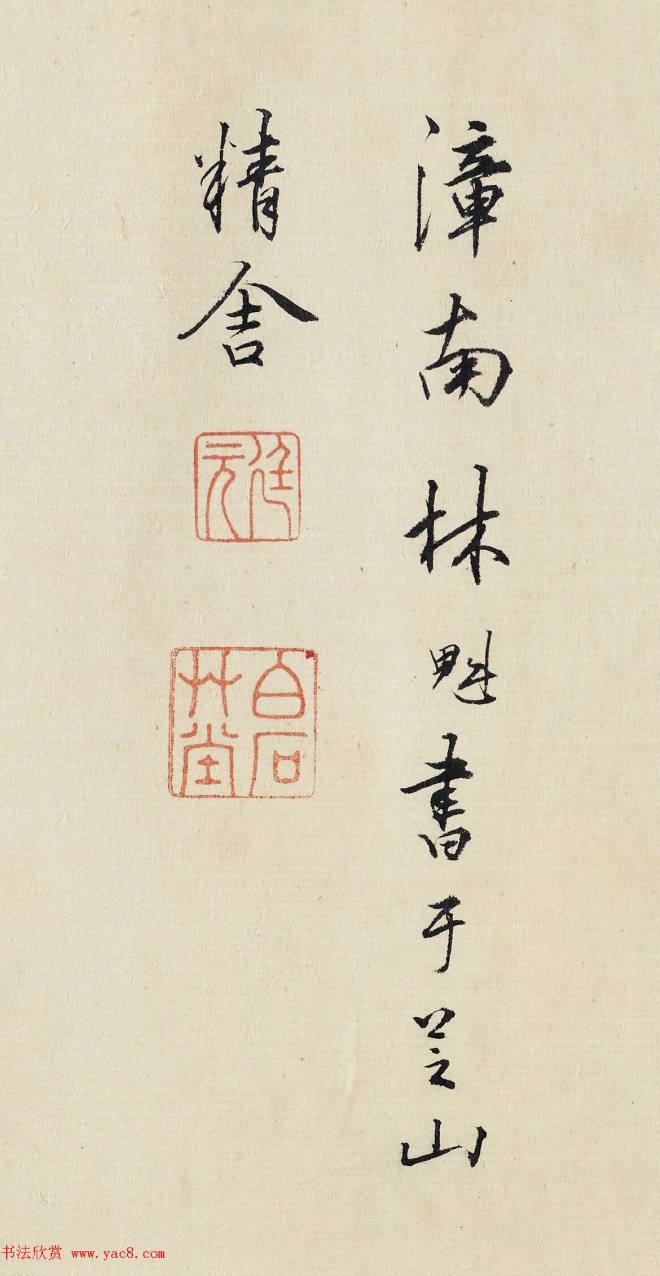 漳南林魁书于芝山
精舍
元
白石
草堂
书法欣赏 www.yac8.com